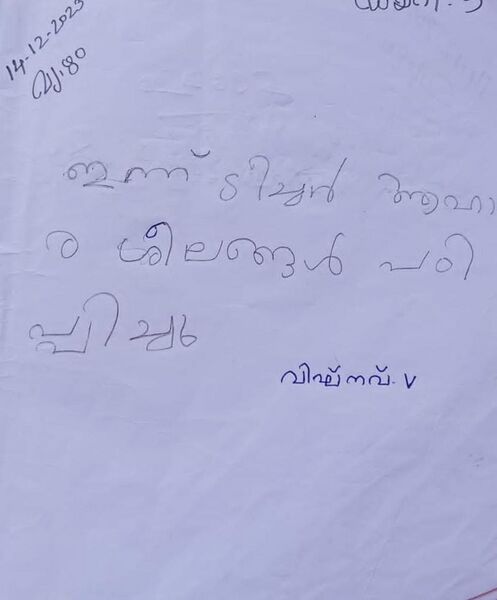 14-12-2023
വ്യാഴം
ഇന്ന് ടീച്ചർ ആഹാ
ര ശീലങ്ങൾ പഠി
പ്പിച്ചു
വിഘ്നവ്. V